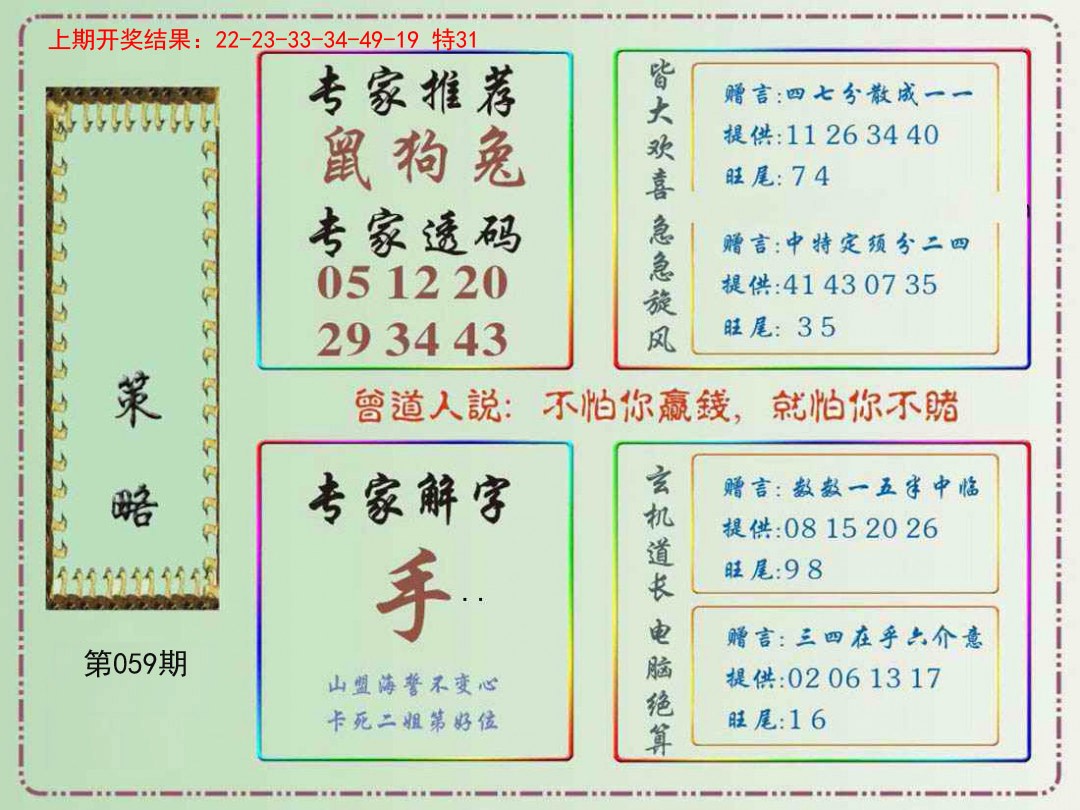 上期开奖结果：22-23-33-34-49-19 特31
策略
第059期
专家推荐
鼠狗兔
专家透码
05 12 20
29 34 43
皆大欢喜
赠言:四七分散成一一
提供:11 26 34 40
旺尾: 7 4
急急旋风
赠言:中特定须分二四
提供:41 43 07 35
旺尾: 3 5
曾道人説: 不怕你赢錢, 就怕你不賭
专家解字
手..
山盟海誓不变心
卡死二姐第好位
玄机道长
赠言: 数数一五半中临
提供:08 15 20 26
旺尾:9 8
电脑绝算
赠言: 三四在乎六介意
提供:02 06 13 17
旺尾:1 6